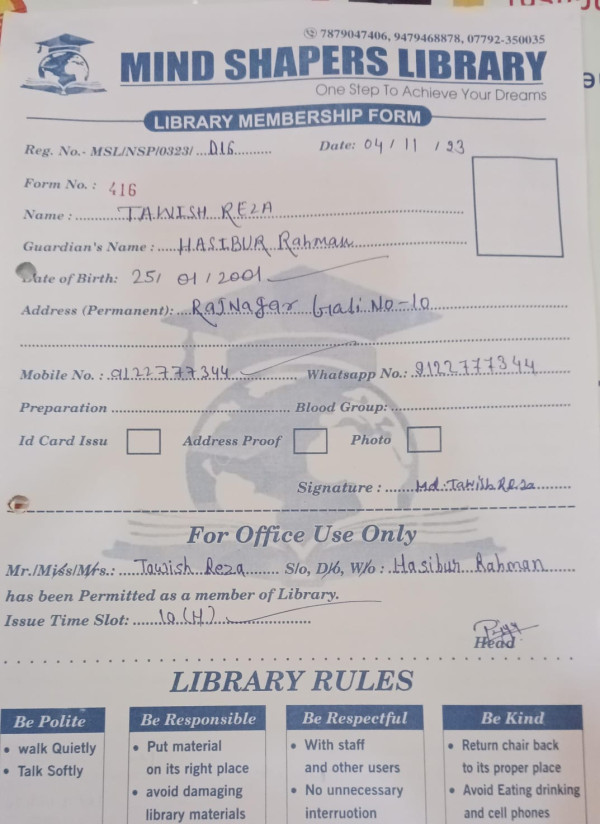 7879047406, 9479468878, 07792-350035
MIND SHAPERS LIBRARY
One Step To Achieve Your Dreams
LIBRARY MEMBERSHIP FORM
Reg. No.- MSL/NSP/0323/...D16.......... Date: 04 / 11 / 23
Form No. : 416
Name : TAWISH REZA
Guardian's Name : HASIBUR Rahman
Date of Birth: 25/ 01 / 2001
Address (Permanent): RajNagar Gali No-10
Mobile No. : 9122777344 Whatsapp No.: 9122777344
Preparation Blood Group:
Id Card Issu Address Proof Photo
Signature : Md. Tawish Reza
For Office Use Only
Mr./Miss/Mrs.: Tawish Reza S/o, D/o, W/o : Hasibur Rahman
has been Permitted as a member of Library.
Issue Time Slot: 10 (H)
Head
LIBRARY RULES
Be Polite Be Responsible Be Respectful Be Kind
• walk Quietly • Put material • With staff • Return chair back
• Talk Softly on its right place and other users to its proper place
• avoid damaging • No unnecessary • Avoid Eating drinking
library materials interruotion and cell phones